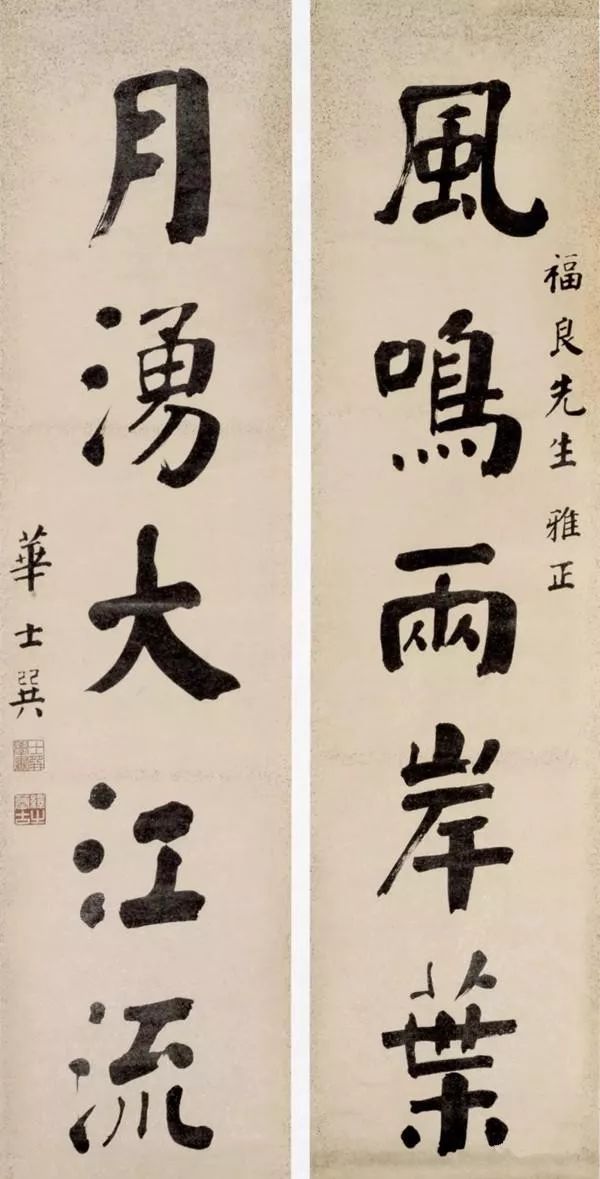 風鳴兩岸葉
福良先生雅正
月湧大江流
華士巽